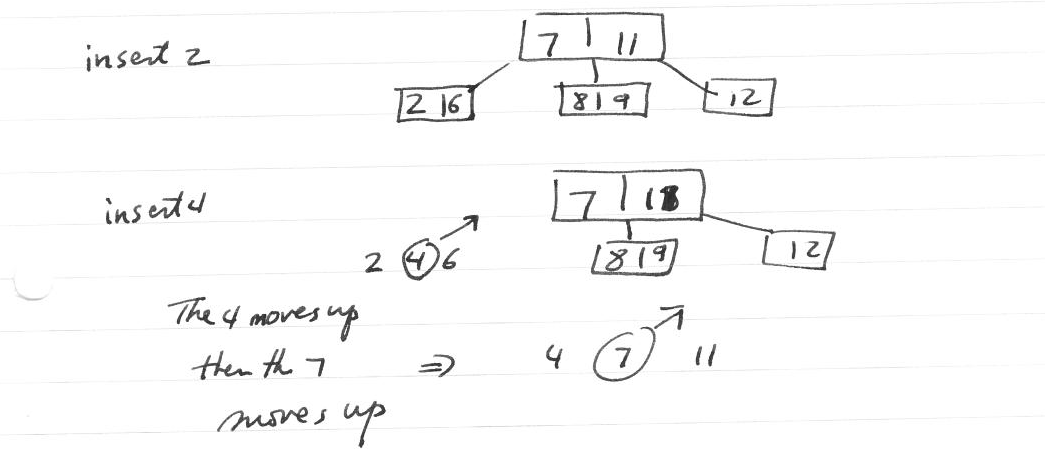 insert 2
7 | 11
2 | 6
8 | 9
12
insert 4
7 | 11
2 4 6
8 | 9
12
The 4 moves up
then the 7 ⇒ 4 7 11
moves up